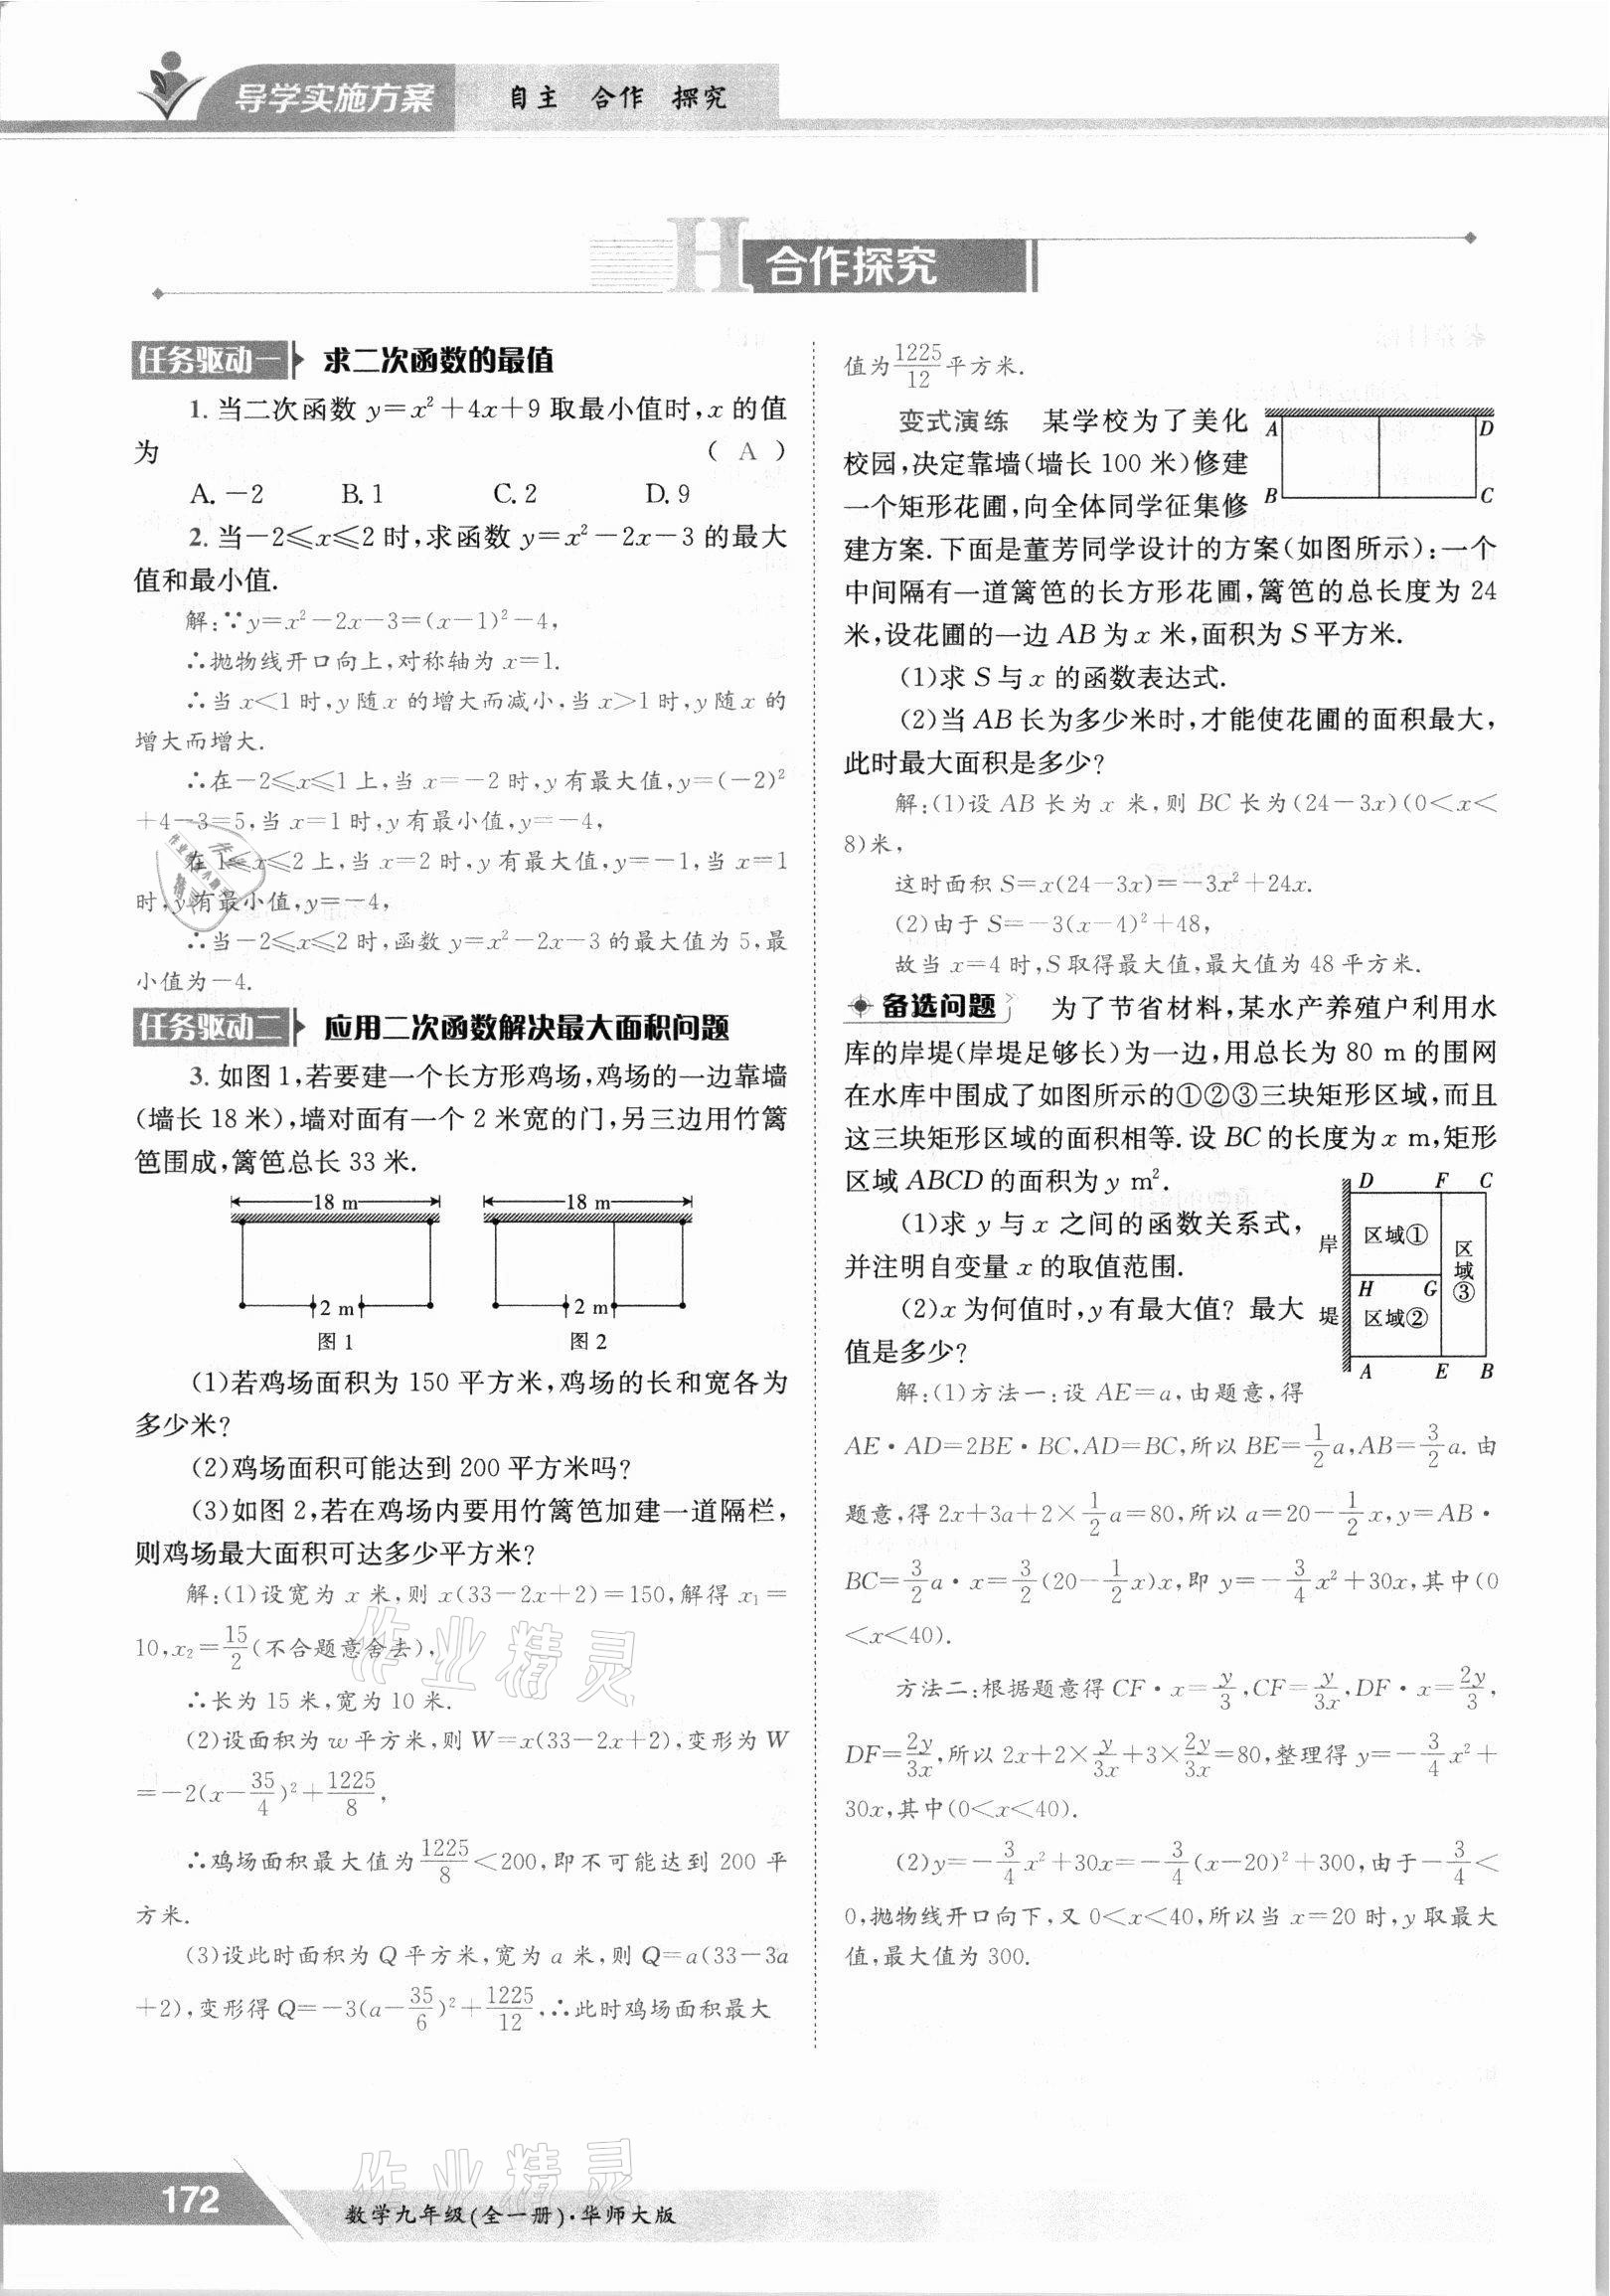 导学实施方案 自主 合作 探究
H 合作探究
任务驱动一 求二次函数的最值
1. 当二次函数 y=x²+4x+9 取最小值时,x 的值
为 ( A )
A. -2 B. 1 C. 2 D. 9
2. 当-2≤x≤2 时,求函数 y=x²-2x-3 的最大
值和最小值.
解:∵y=x²-2x-3=(x-1)²-4,
∴抛物线开口向上,对称轴为 x=1.
∴当 x<1 时,y 随 x 的增大而减小,当 x>1 时,y 随 x 的
增大而增大.
∴在-2≤x≤1 上,当 x=-2 时,y 有最大值,y=(-2)²
+4-3=5,当 x=1 时,y 有最小值,y=-4,
在 1≤x≤2 上,当 x=2 时,y 有最大值,y=-1,当 x=1
时,y 有最小值,y=-4,
∴当-2≤x≤2 时,函数 y=x²-2x-3 的最大值为 5,最
小值为-4.
任务驱动二 应用二次函数解决最大面积问题
3. 如图 1,若要建一个长方形鸡场,鸡场的一边靠墙
(墙长 18 米),墙对面有一个 2 米宽的门,另三边用竹篱
笆围成,篱笆总长 33 米.
18 m 18 m
2 m 2 m
图 1 图 2
(1)若鸡场面积为 150 平方米,鸡场的长和宽各为
多少米?
(2)鸡场面积可能达到 200 平方米吗?
(3)如图 2,若在鸡场内要用竹篱笆加建一道隔栏,
则鸡场最大面积可达多少平方米?
解:(1)设宽为 x 米,则 x(33-2x+2)=150,解得 x₁=
10,x₂=15/2(不合题意舍去),
∴长为 15 米,宽为 10 米.
(2)设面积为 w 平方米,则 W=x(33-2x+2),变形为 W
=-2(x-35/4)²+1225/8,
∴鸡场面积最大值为1225/8<200,即不可能达到 200 平
方米.
(3)设此时面积为 Q 平方米,宽为 a 米,则 Q=a(33-3a
+2),变形得 Q=-3(a-35/6)²+1225/12,∴此时鸡场面积最大
值为1225/12平方米.
变式演练 某学校为了美化
校园,决定靠墙(墙长 100 米)修建
一个矩形花圃,向全体同学征集修
A D
B C
建方案.下面是董芳同学设计的方案(如图所示):一个
中间隔有一道篱笆的长方形花圃,篱笆的总长度为 24
米,设花圃的一边 AB 为 x 米,面积为 S 平方米.
(1)求 S 与 x 的函数表达式.
(2)当 AB 长为多少米时,才能使花圃的面积最大,
此时最大面积是多少?
解:(1)设 AB 长为 x 米,则 BC 长为(24-3x)(0<x<
8)米,
这时面积 S=x(24-3x)=-3x²+24x.
(2)由于 S=-3(x-4)²+48,
故当 x=4 时,S 取得最大值,最大值为 48 平方米.
备选问题 为了节省材料,某水产养殖户利用水
库的岸堤(岸堤足够长)为一边,用总长为 80 m 的围网
在水库中围成了如图所示的①②③三块矩形区域,而且
这三块矩形区域的面积相等.设 BC 的长度为 x m,矩形
区域 ABCD 的面积为 y m².
(1)求 y 与 x 之间的函数关系式,
并注明自变量 x 的取值范围.
(2)x 为何值时,y 有最大值? 最大
值是多少?
D F C
岸 区域① 区域③
H G
堤 区域②
A E B
解:(1)方法一:设 AE=a,由题意,得
AE·AD=2BE·BC,AD=BC,所以 BE=1/2a,AB=3/2a.由
题意,得 2x+3a+2×1/2a=80,所以 a=20-1/2x,y=AB·
BC=3/2a·x=3/2(20-1/2x)x,即 y=-3/4x²+30x,其中(0
<x<40).
方法二:根据题意得 CF·x=y/3,CF=y/3x,DF·x=2y/3,
DF=2y/3x,所以 2x+2×y/3x+3×2y/3x=80,整理得 y=-3/4x²+
30x,其中(0<x<40).
(2)y=-3/4x²+30x=-3/4(x-20)²+300,由于-3/4<
0,抛物线开口向下,又 0<x<40,所以当 x=20 时,y 取最大
值,最大值为 300.
作业精灵
作业精灵
172
数学九年级(全一册)·华师大版